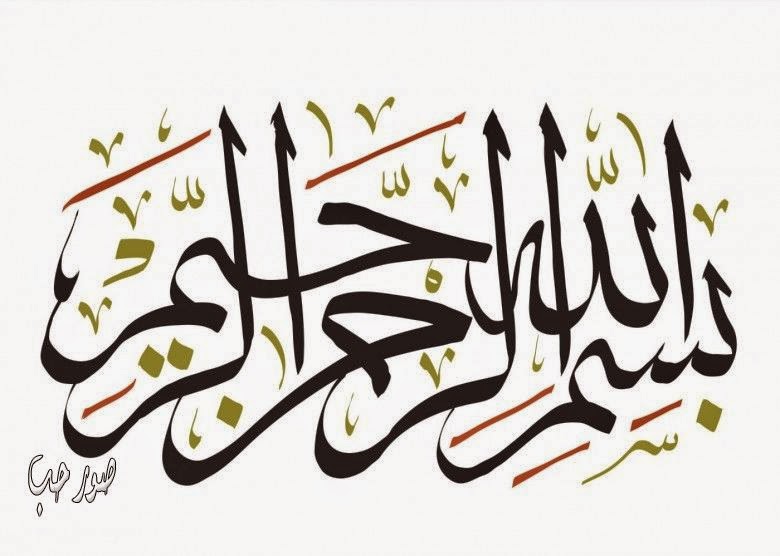 بِسْمِ اللّٰهِ الرَّحْمٰنِ الرَّحِيْمِ
صور حب